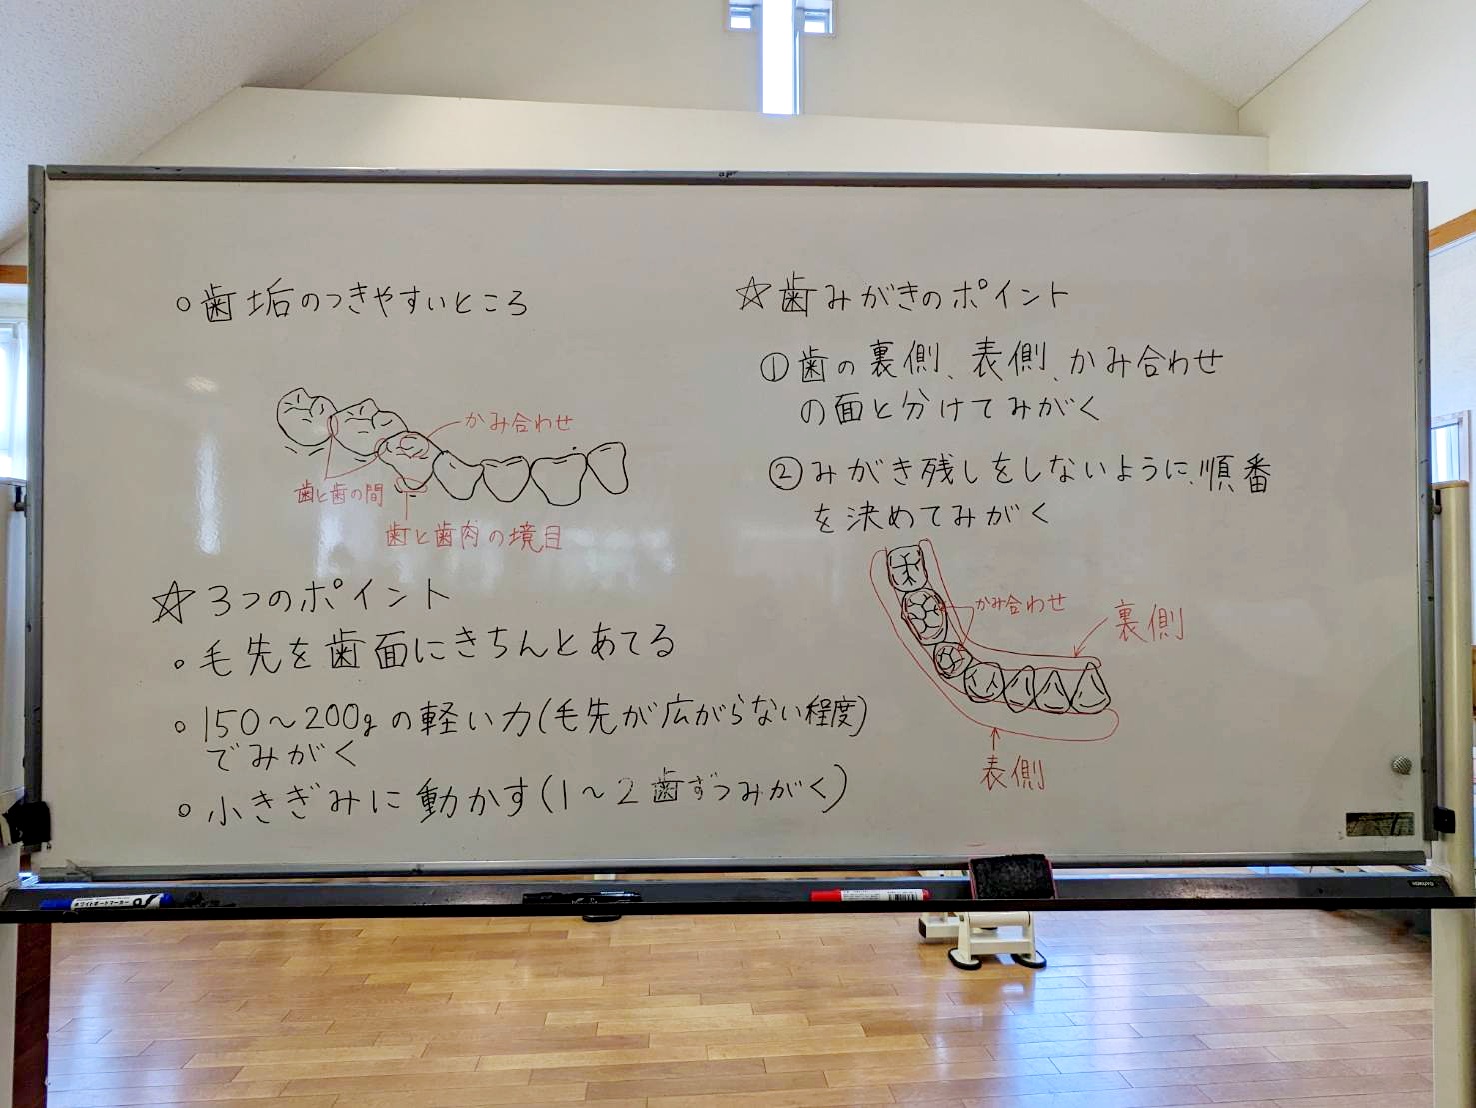 ○歯垢のつきやすいところ
かみ合わせ
歯と歯の間
歯と歯肉の境目
☆3つのポイント
○毛先を歯面にきちんとあてる
○150〜200gの軽い力(毛先が広がらない程度)
でみがく
○小きざみに動かす(1〜2歯ずつみがく)
☆歯みがきのポイント
①歯の裏側、表側、かみ合わせ
の面と分けてみがく
②みがき残しをしないように、順番
を決めてみがく
かみ合わせ
裏側
表側
ホワイトボードマーカー